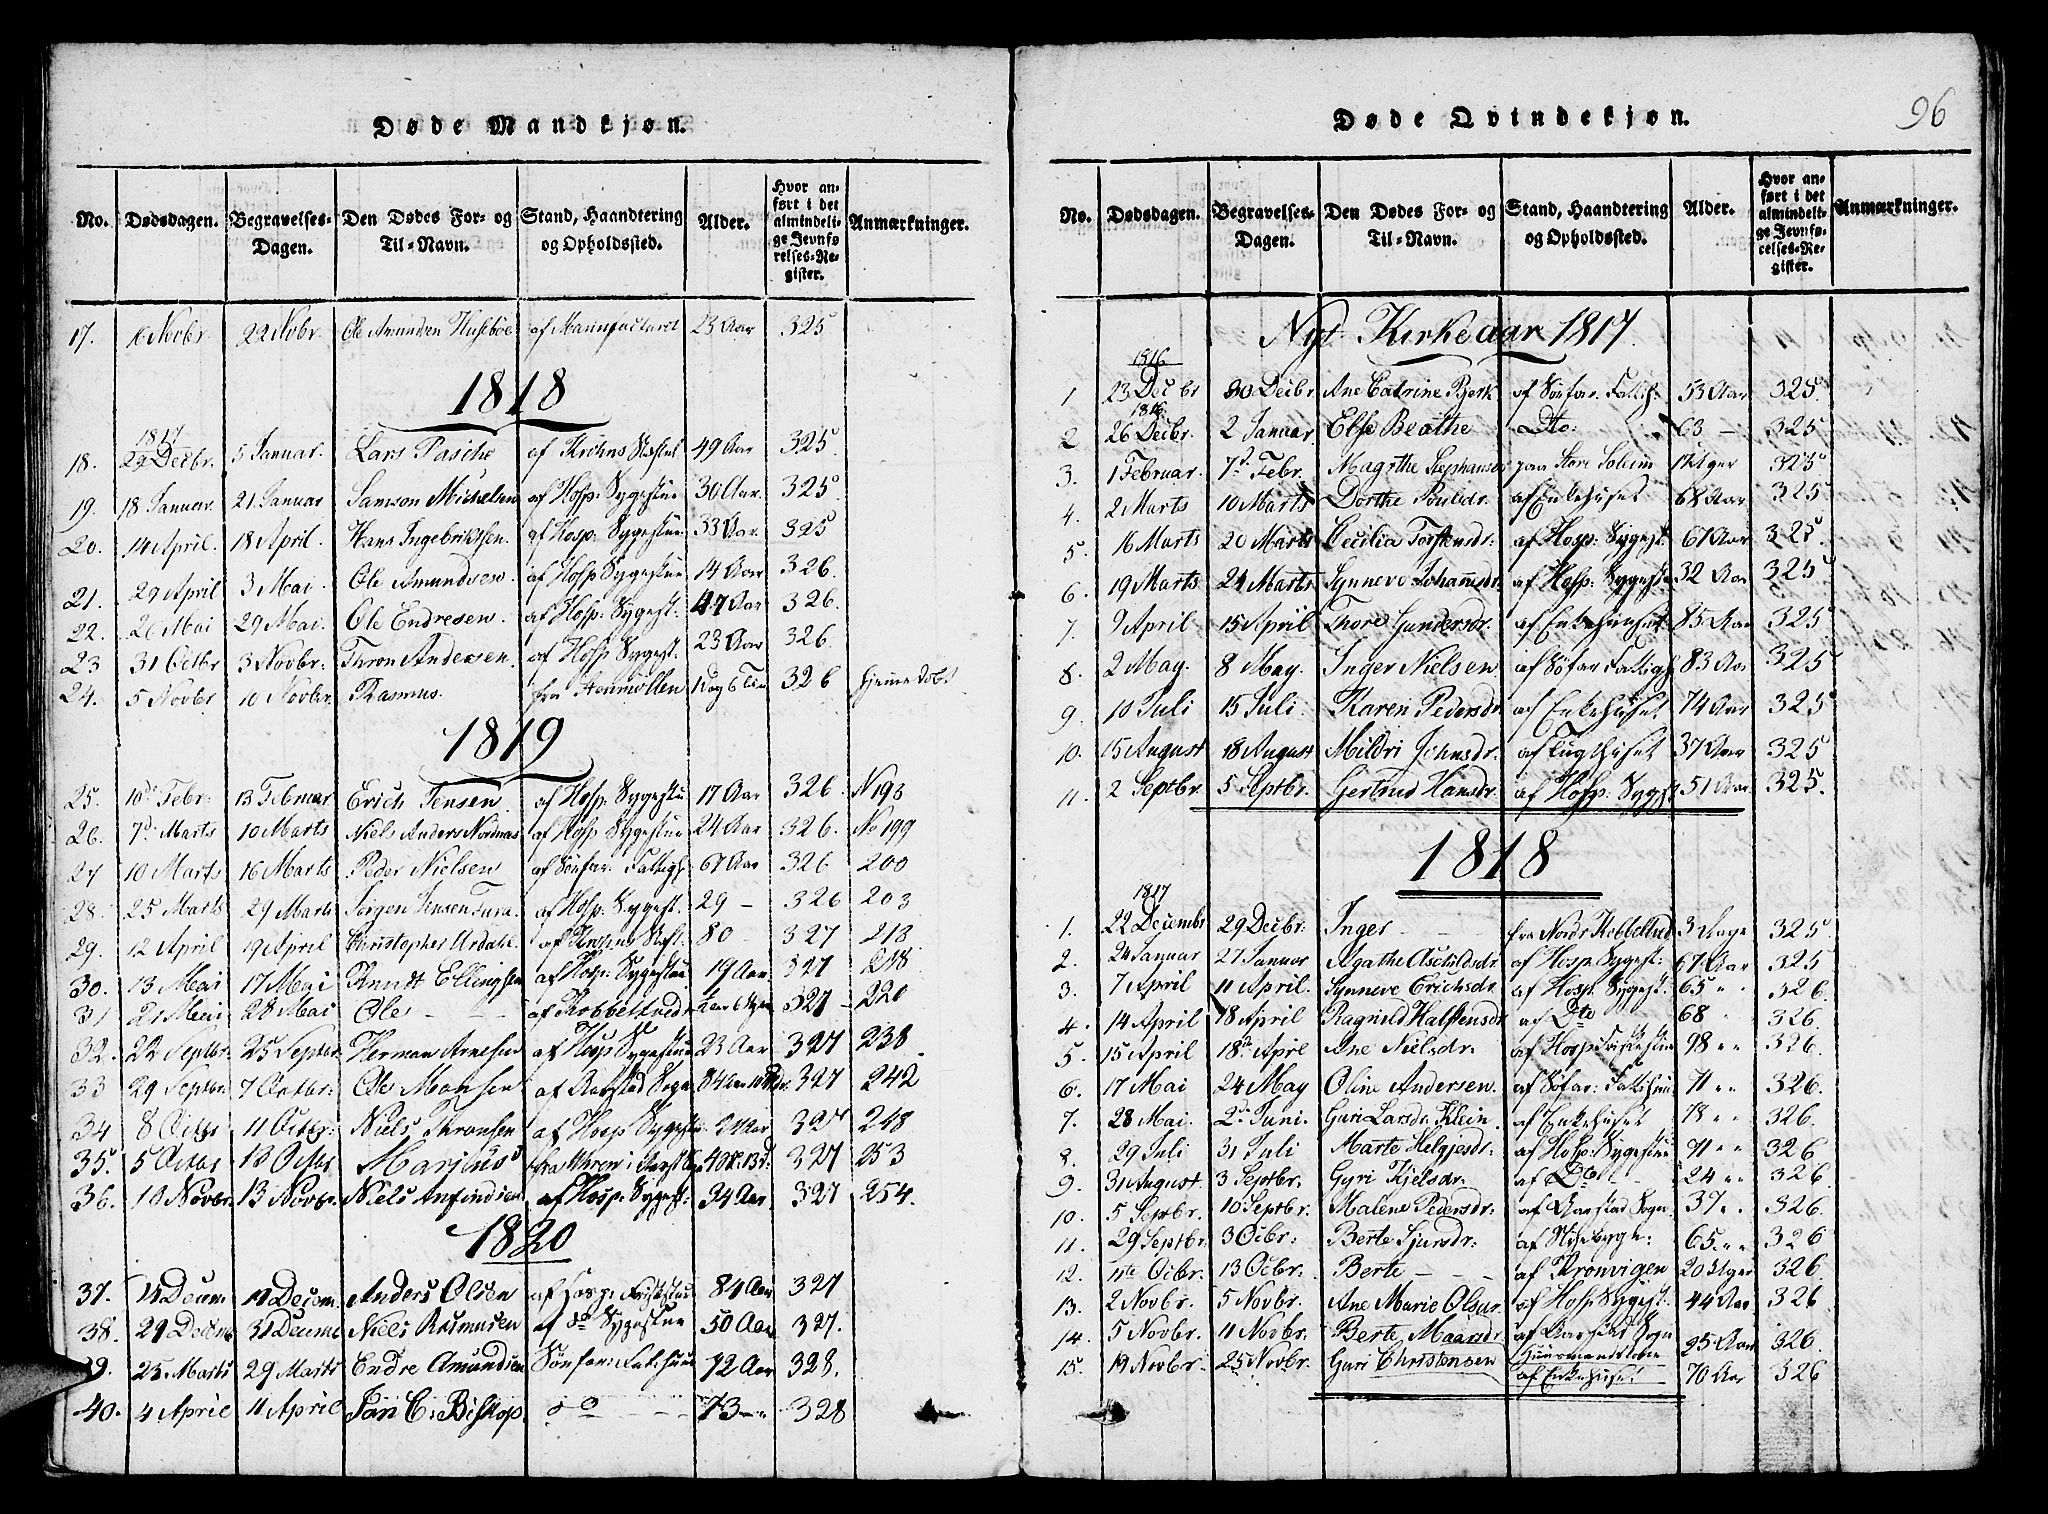 Døde Mandkjøn.
No. Dødsdagen. Begravelses-Dagen. Den Dødes For- og Til-Navn. Stand, Haandtering og Opholdssted. Alder. Hvor anført i det almindelige Jevnførelses-Register. Anmærkninger.
17. 16 Novbr 22 Novbr. Ole Amundsen Husebøe af Manufacturet 23 Aar 325
1818
1817
18. 29 Decbr. 5 Januar. Lars Pasche af Krohns Stiftel 49 Aar 325
19. 18 Januar. 21 Januar Samson Michelsen af Hosp: Sygestue 30 Aar. 325
20. 14 April. 18 April. Hans Ingebrictsen. af Hosp: Sygestue 33 Aar. 325
21. 29 April 3 Mai Ole Amundsen. af Hosp Sygestue 14 Aar 326.
22. 26 Mai 29 Mai. Ole Endresen. af Hosp: Sygest: 47 Aar 326.
23 31 Octbr 3 Novbr: Thron Andersen. af Hosp Sygest. 23 Aar 326.
24. 5 Novbr 10 Novbr. Rasmus. fra Steenmøllen 1 Dag 6 Tim 326 hjemme døbt
1819
25. 10d Febr. 13 Februar Erich Jensen. af Hosp: Sygestu 17 Aar 326. No 198
26. 7d Marts 10 Marts Niels Anders Nordnæs af Hosp: Sygestue 24 Aar 326. No 199
27 10 Marts 16 Marts Peder Nielsen af Sønfar. Fattigh. 67 Aar 326 200
28. 25 Marts 29 Marts Jørgen Jensen af Hosp: Sygest. 29 - 326 203
29. 12 April 19 April Christopher Urdahl. af Krohns Stift. 80 - 327 213
30. 13 Mai 17 Mai Knudt Ellingsen af Hosp: Sygestue 19 Aar 327 218.
31 21 Mai 28 Mai Ole - - 327 - 220
32. 22 Septbr. 25 Septbr Herman Arnesen af Hosp Sygestue 23 Aar 327 238.
33 29 Septbr. 7 Octbr: Ole Monsen af Aarstad Sogn 84 Aar 327 242
34 8 Octbr 11 Octbr: Niels Thronsen af Hosp Sygestue 21 Aar 327 248
35. 5 Octbr 10 Octbr Marjus 327 253
36. 10 Novbr. 13 Novbr. Niels Anfindsen af Hosp: Sygest: 34 Aar 327 254.
1820
37. 14 Decem. 19 Decem. Anders Olsen af Hosp: 84 Aar 327
38. 29 Decemb 31 Decemb Niels Rasmusen af do Sygestue 50 Aar 327.
39. 25 Marts 29 Marts Endre Amundsen Sønfarer Fat: huus 72 Aar 328.
40. 4 April 11 April Jan C: Biskop. do - - 73 - 328
Døde Qvindekjøn.
96
No. Dødsdagen. Begravelses-Dagen. Den Dødes For- og Til-Navn. Stand, Haandtering og Opholdssted. Alder. Hvor anført i det almindelige Jevnførelses-Register. Anmærkninger.
Nyt Kirkeaar 1817.
1816
1 23 Decbr 30 Decbr. Ane Catrine Bjerk af Sønfar. Fattigh. 53 Aar 325.
1816
2 26 Decbr. 2 Januar Else Beathe Dto: 63 - 325
3. 1 Februar. 7d Febr. Magrethe Stephansd paa Store Soleim 12 Uger 325
4. 2 Marts 10 Marts Dorthe Pulsdr. af Enkehuset 68 Aar 325
5. 16 Marts 20 Marts Cecilia Torstensdr. af Hosp: Sygest: 67 Aar 325.
6. 19 Marts 24 Marts Synneve Johansdr. af Hosp: Sygestue 32 Aar 325
7. 9 April 15 April Thore Gundersdr. af Enkehuset. 85 Aar 325
8. 2 May. 8 May. Inger Nielsen af Søfar Fattigh 83 Aar 325
9. 10 Juli 15 Juli. Karen Pedersdr. af Enkehuset 74 Aar 325
10. 15 August 18 August Mildri Johnsdr. af Tugthuset 37 Aar 325
11. 2 Septbr. 5 Septbr. Gjertrud Hansdr. af Hosp. Sygest 51 Aar. 325.
1818
1817
1. 22 Decembr 29 Decbr. Inger - - fra Nordr 3 Dage 325
2. 24 Januar 27 Januar Agathe Aschildsdr. af Hosp Sygest: 67 Aar 325
3. 7 April 11 April. Synneve Erichsdr. af Hosp: Sygest. 65 " " 326
4. 14 April 18 April Ragnild Halstensdr af Dto 68 " 326.
5. 15 April 18d April Ane Nielsdr. af Hosp 98 " " 326.
6. 17 Mai 24 May Oline Andersen. af Søfar: Fattihuus 71 " " 326.
7. 28 Mai. 2d Juni. Guri Larsdr. Klein. af Enkehuset 78 " " 326.
8. 29 Juli 31 Juli Marte Helgjesdr. af Hosp: Sygestue 71 " " 326
9. 31 August. 3 Septbr. Gyri Kjelsdr. af Dto - 24 " " 326.
10. 5 Septbr. 10 Septbr. Malene Pedersdr. af Aarstad Sogn. 37 " . 326.
11. 29 Septbr. 3 Octbr: Berte Sjursdr. 65 " " 326
12. 11te Octbr. 13 Octbr: Berte - - - af Kronvigen 20 Uger 326.
13. 2 Novbr. 5 Novbr. Ane Marie Olsdr. af Hosp Sygest: 44 Aar 326
14. 5 Novbr. 11 Novbr. Berte Maansdr. af Aarstad Sogn Huusmandskone 95 Aar 326
15. 19 Novbr. 25 Novbr. Guri Christensen af Enkehuset 70 Aar 326